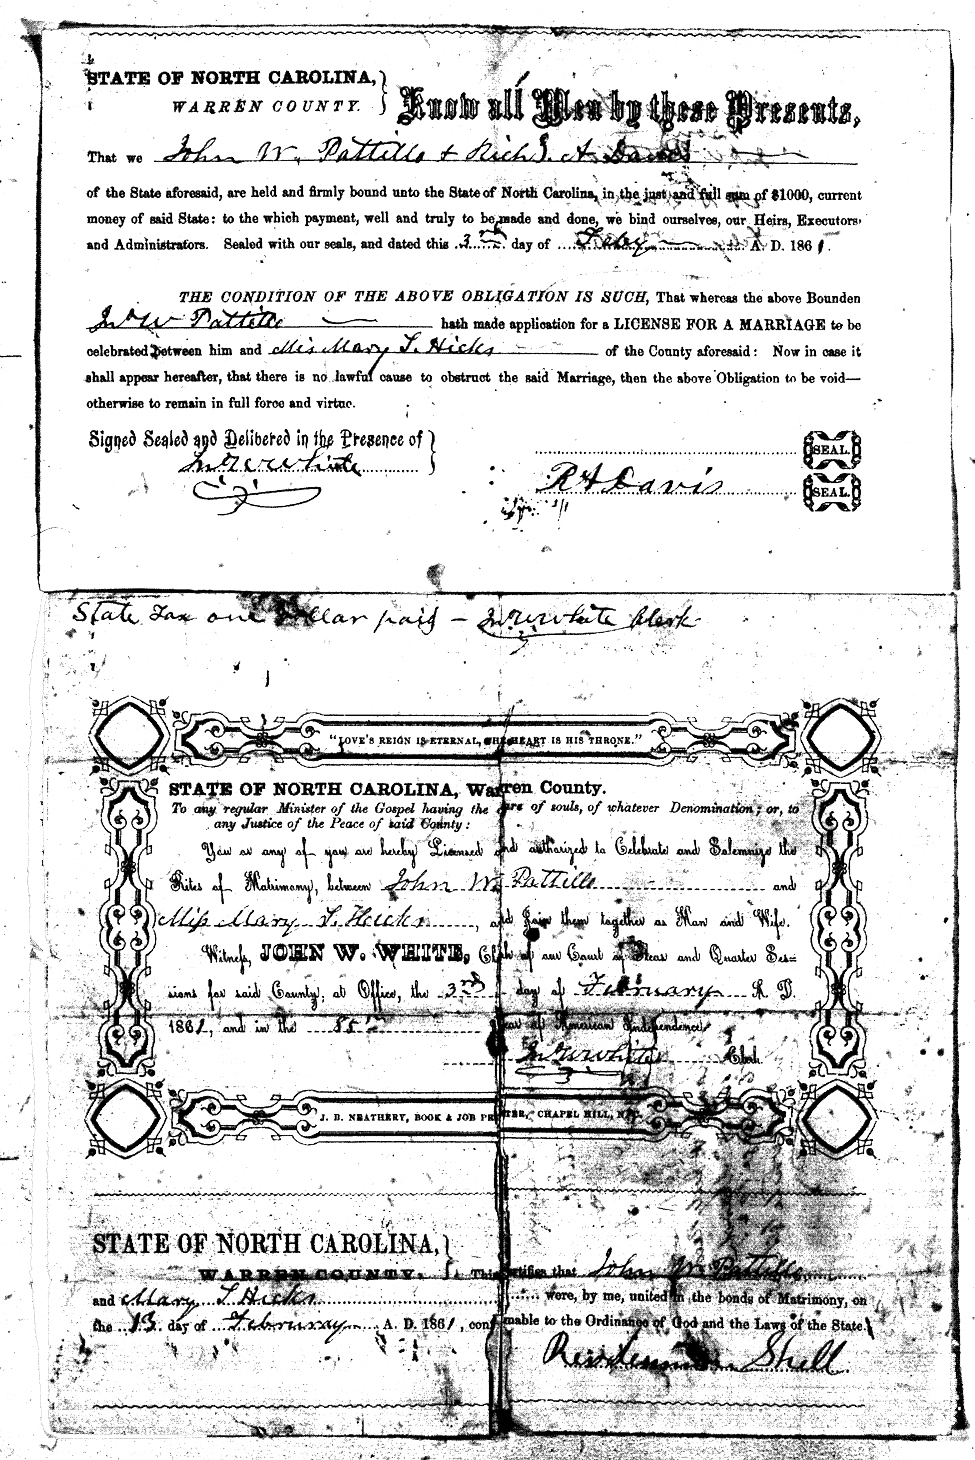 STATE OF NORTH CAROLINA,
WARREN COUNTY.
Know all Men by these Presents,
That we John W. Pattillo + Richd A Davis
of the State aforesaid, are held and firmly bound unto the State of North Carolina, in the just and full sum of $1000, current
money of said State: to the which payment, well and truly to be made and done, we bind ourselves, our Heirs, Executors
and Administrators. Sealed with our seals, and dated this 3rd day of Feby A. D. 1861.
THE CONDITION OF THE ABOVE OBLIGATION IS SUCH, That whereas the above Bounden
Jno W Pattillo hath made application for a LICENSE FOR A MARRIAGE to be
celebrated between him and Miss Mary S. Hicks of the County aforesaid: Now in case it
shall appear hereafter, that there is no lawful cause to obstruct the said Marriage, then the above Obligation to be void—
otherwise to remain in full force and virtue.
Signed Sealed and Delibered in the Presence of
Jno W White
SEAL.
R A Davis SEAL.
State Tax one Dollar paid – Jno W White Clerk
"LOVE'S REIGN IS ETERNAL, THE HEART IS HIS THRONE."
STATE OF NORTH CAROLINA, Warren County.
To any regular Minister of the Gospel having the care of souls, of whatever Denomination; or, to
any Justice of the Peace of said County:
You or any of you are hereby Licensed and authorized to Celebrate and Solemnize the
Rites of Matrimony, between John W. Pattillo and
Miss Mary S. Hicks, and Join them together as Man and Wife.
Witness, JOHN W. WHITE, Clerk of our Court of Pleas and Quarter Ses=
sions for said County, at Office, the 3rd day of February A. D.
1861, and in the 85th year of American Independence
Jno W White Clerk
J. B. NEATHERY, BOOK & JOB PRINTER, CHAPEL HILL, N. C.
STATE OF NORTH CAROLINA,
WARREN COUNTY.
This certifies that John W. Pattillo
and Mary S Hicks were, by me, united in the bonds of Matrimony, on
the 13 day of February A. D. 1861, conformable to the Ordinance of God and the Laws of the State.
Shell